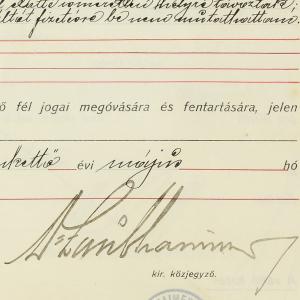 előtte ismeretlen helyre távozták;
váltót fizetésre be nem mutathattam.
ő fél jogai megóvására és fentartására, jelen
kettő évi május hó
kir. közjegyző.